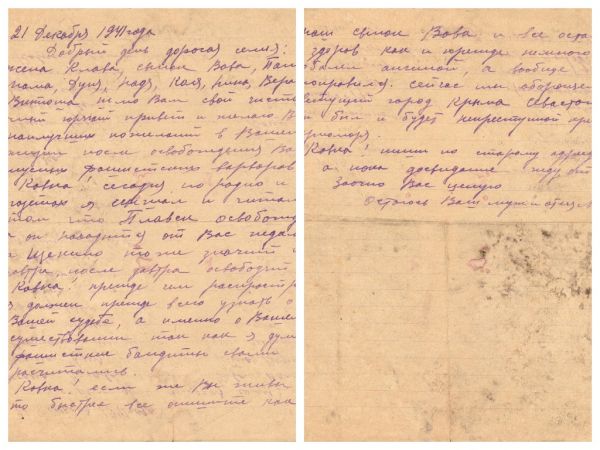 21 Декабря 1941 года
Добрый день дорогая семья:
жена Клава, сынок Вова, Пап
мама, Дуся, Надя, Катя, Нина, Вера
Витюша шлю Вам свой чисто
горячий привет и желаю В
наилучших пожеланий в Вашей
жизни после освобождения Ва
фашистских варваров
Кавка! сегодня по радио и
я слышал и читал
том что Плавск освобожд
а он находится от Вас недал
и Щекино тоже значит
завтра, после завтра освободит
Кавка! прежде чем распростр
я должен прежде всего узнать о
Вашей судьбе, а именно о Вашем
существовании так как я дум
фашисткие бандиты с вами
расчитались.
Кавка! если же Вы живы
то быстрее все опишите как
наш сынок Вова и все оста
Я здоров как и прежде немного
болел ангиной, а вообще
поправился. Сейчас мы обороняем
город Крыма Севастоп
был и будет неприступной кре
Черноморя.
Кавка! пиши по старому адресу
а пока досвидание жду от
Заочно Вас целую
Остаюсь Ваш муж и отец